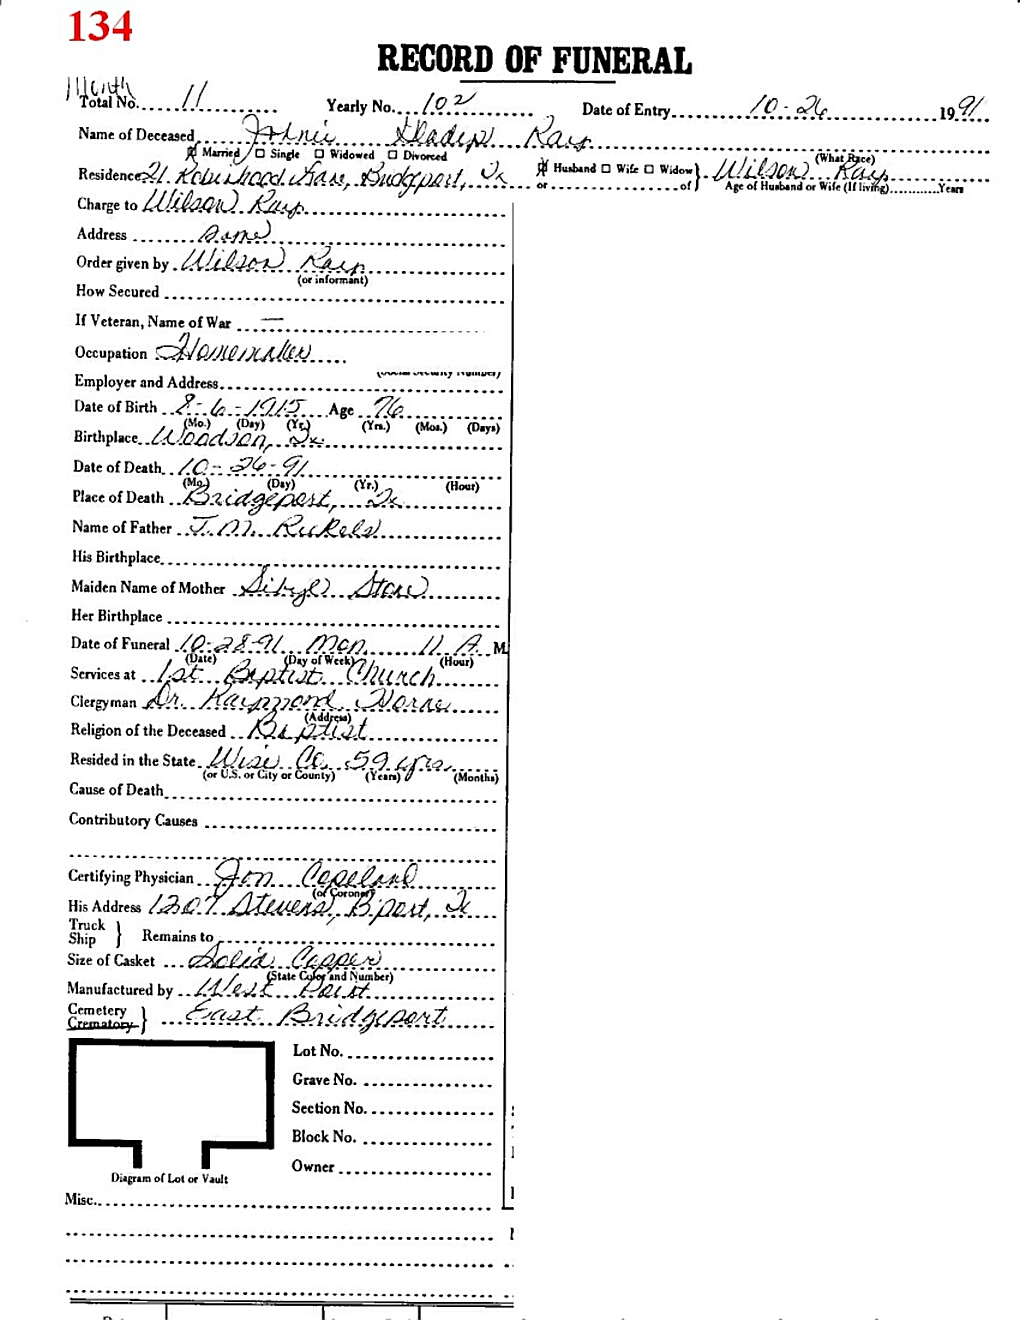 134
RECORD OF FUNERAL
Month
Total No. 11 Yearly No. 102 Date of Entry 10-26 1991
Name of Deceased Johnie Gladys Ray
(What Race)
Married Single Widowed Divorced Husband Wife Widow
Residence 21 Robinhood Lane, Bridgeport, Tx or of Wilson Ray
Age of Husband or Wife (If living) Years
Charge to Wilson Ray
Address Same
Order given by Wilson Ray
(or informant)
How Secured
If Veteran, Name of War —
Occupation Homemaker
(Social Security Number)
Employer and Address
Date of Birth 8-6-1915 Age 76
(Mo.) (Day) (Yr.) (Yrs.) (Mos.) (Days)
Birthplace Woodson, Tx
Date of Death 10-26-91
(Mo.) (Day) (Yr.) (Hour)
Place of Death Bridgeport, Tx
Name of Father J.M. Rickels
His Birthplace
Maiden Name of Mother Sibyl
Her Birthplace
Date of Funeral 10-28-91 Mon 11 A M.
(Date) (Day of Week) (Hour)
Services at 1st Baptist Church
Clergyman Dr. Raymond Horne
(Address)
Religion of the Deceased Baptist
Resided in the State Wise Co. 59 yrs.
(or U.S. or City or County) (Years) (Months)
Cause of Death
Contributory Causes
Certifying Physician Jon Copeland
(of Coroner)
His Address 1307 Stevens, B'port, Tx
Truck
Ship } Remains to
Size of Casket Solid Copper
(State Color and Number)
Manufactured by West Point
Cemetery
Crematory } East Bridgeport
Lot No.
Grave No.
Section No.
Block No.
Owner
Diagram of Lot or Vault
Misc.